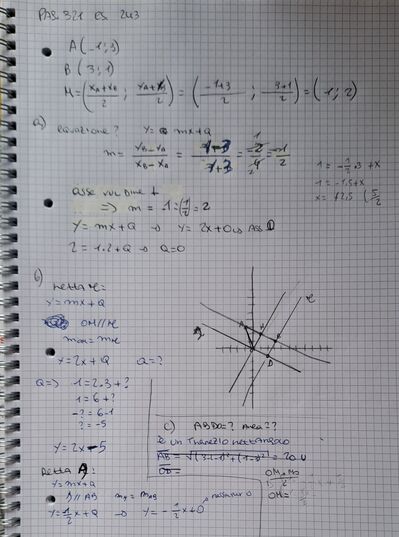 PAG 321 es 243
A (-1; 3)
B (3; 1)
M = (xA+xB / 2 ; yA+yB / 2) = (-1+3 / 2 ; 3+1 / 2) = (1; 2)
a) equazione? y = mx+q
m = yB-yA / xB-xA = 1-3 / 1+3 = -2 / 4 = -1 / 2
1 = -1/2 · 3 + x
1 = -1,5+x
x = +2,5 (5/2
asse vuol dire ⊥
=> m = -1 : (1/2) = 2
y = mx+q → y = 2x+0 → Ass
2 = 1·2+q → q=0
b) retta r:
y = mx+q
OM // r
mOM = mr
y = 2x+q q = ?
q => 1 = 2·3+?
1 = 6+?
-? = 6-1
? = -5
y = 2x-5
retta
y = mx+q
// AB m = mAB
y = 1/2 x+q → y = -1/2 x+0
A
M
B
D
r
c) ABDO = ? Area = ?
è un trapezio rettangolo
AB = √(3-1-1)²+(1-3)² = 20 u
OD =
OM =